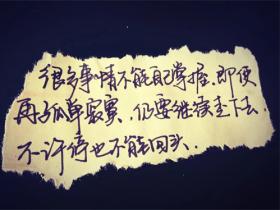 很多事情不能自己掌握,即使
再孤单寂寞、仍要继续走下去,
不许停也不能回头.